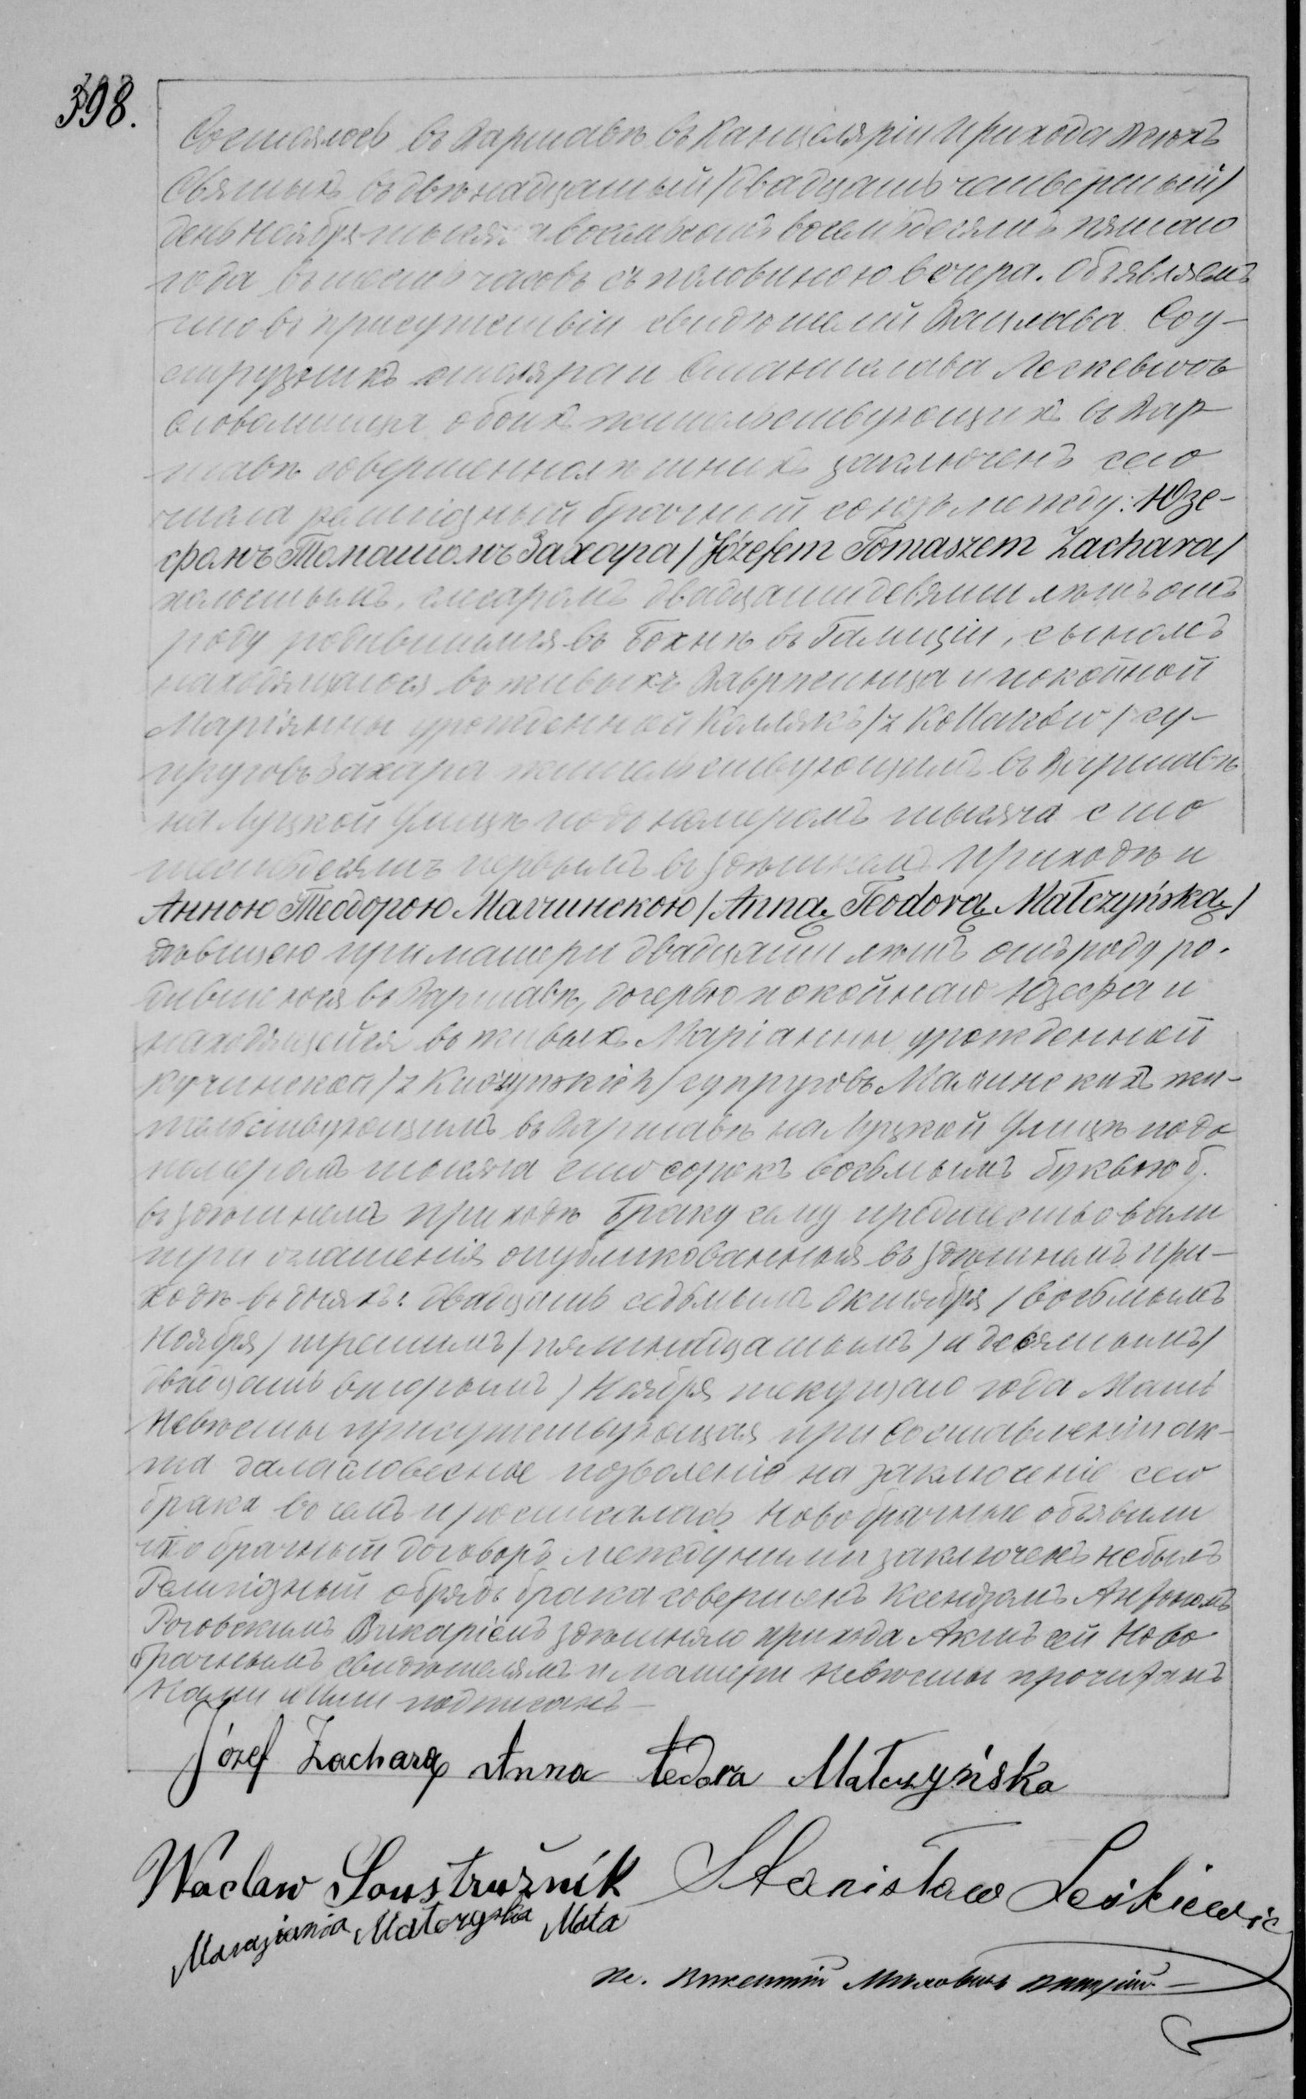 398.
Состоялось въ Варшавѣ въ Канцеляріи Прихода Всѣхъ
Святыхъ въ двѣнадцатый /двадцать четвертый/
день Ноября тысяча восемьсотъ восемьдесятъ пятаго
года въ шесть часовъ съ половиною вечера. Объявляемъ
что въ присутствіи свидѣтелей Вацлава Соу-
стружникъ столяра и Станислава Лескевичъ
обоихъ жительствующихъ въ Вар
шавѣ совершеннолѣтнихъ заключенъ сего
числа религіозный брачный союзъ между: Юзе-
фомъ Томашомъ Захара /Józefem Tomaszem Zachara/
холостымъ, слесаромъ двадцати девяти лѣтъ отъ
роду родившимся въ Бохнѣ въ Галиціи, сыномъ
находящагося въ живыхъ Вавржинца и покойной
Маріянны урожденной Коллякъ /z Kollaków/ су-
пруговъ Захара жительствующимъ въ Варшавѣ
на Луцкой Улицѣ подъ номеромъ тысяча сто
шестьдесятъ первымъ въ здѣшнемъ приходѣ и
Анною Теодорою Малчинскою /Anną Teodorą Małczyńską/
дѣвицею при матери двадцати лѣтъ отъ роду ро-
дившеюся въ Варшавѣ, дочерью покойнаго Юзефа и
находящейся въ живыхъ Маріанны урожденной
Кучинской /z Kuczyńskich/ супруговъ Малчинскихъ жи-
тельствующимъ въ Варшавѣ на Луцкой Улицѣ подъ
номеромъ тысяча сто сорокъ восьмымъ буквою б.
въ здѣшнемъ приходѣ Браку сему предшествовали
три оглашенія опубликованныя въ здѣшнемъ при-
ходѣ въ дняхъ: двадцать седьмымъ Октября /восьмымъ
Ноября/ третимъ /пятнадцатымъ/ и десятымъ/
двадцать вторымъ/ Ноября текущаго года Мать
Невѣсты присутствующая при составленіи ак-
та дала словесное позволеніе на заключеніе сего
брака Новобрачные объявили
что брачный договоръ между ними заключенъ небылъ
Религіозный обрядъ брака совершенъ Ксендзомъ Антономъ
Роговскимъ Викаріемъ здѣшняго прихода Актъ сей Ново
брачнымъ свидѣтелямъ и матери Невѣсты прочитанъ
Нами и Ими подписанъ
Józef Zachara Anna Tedora Małczyńska
Wacław Soustružnik Stanisław Leśkiewic
Maryianna Małczyska Mata
Кс. Викентій